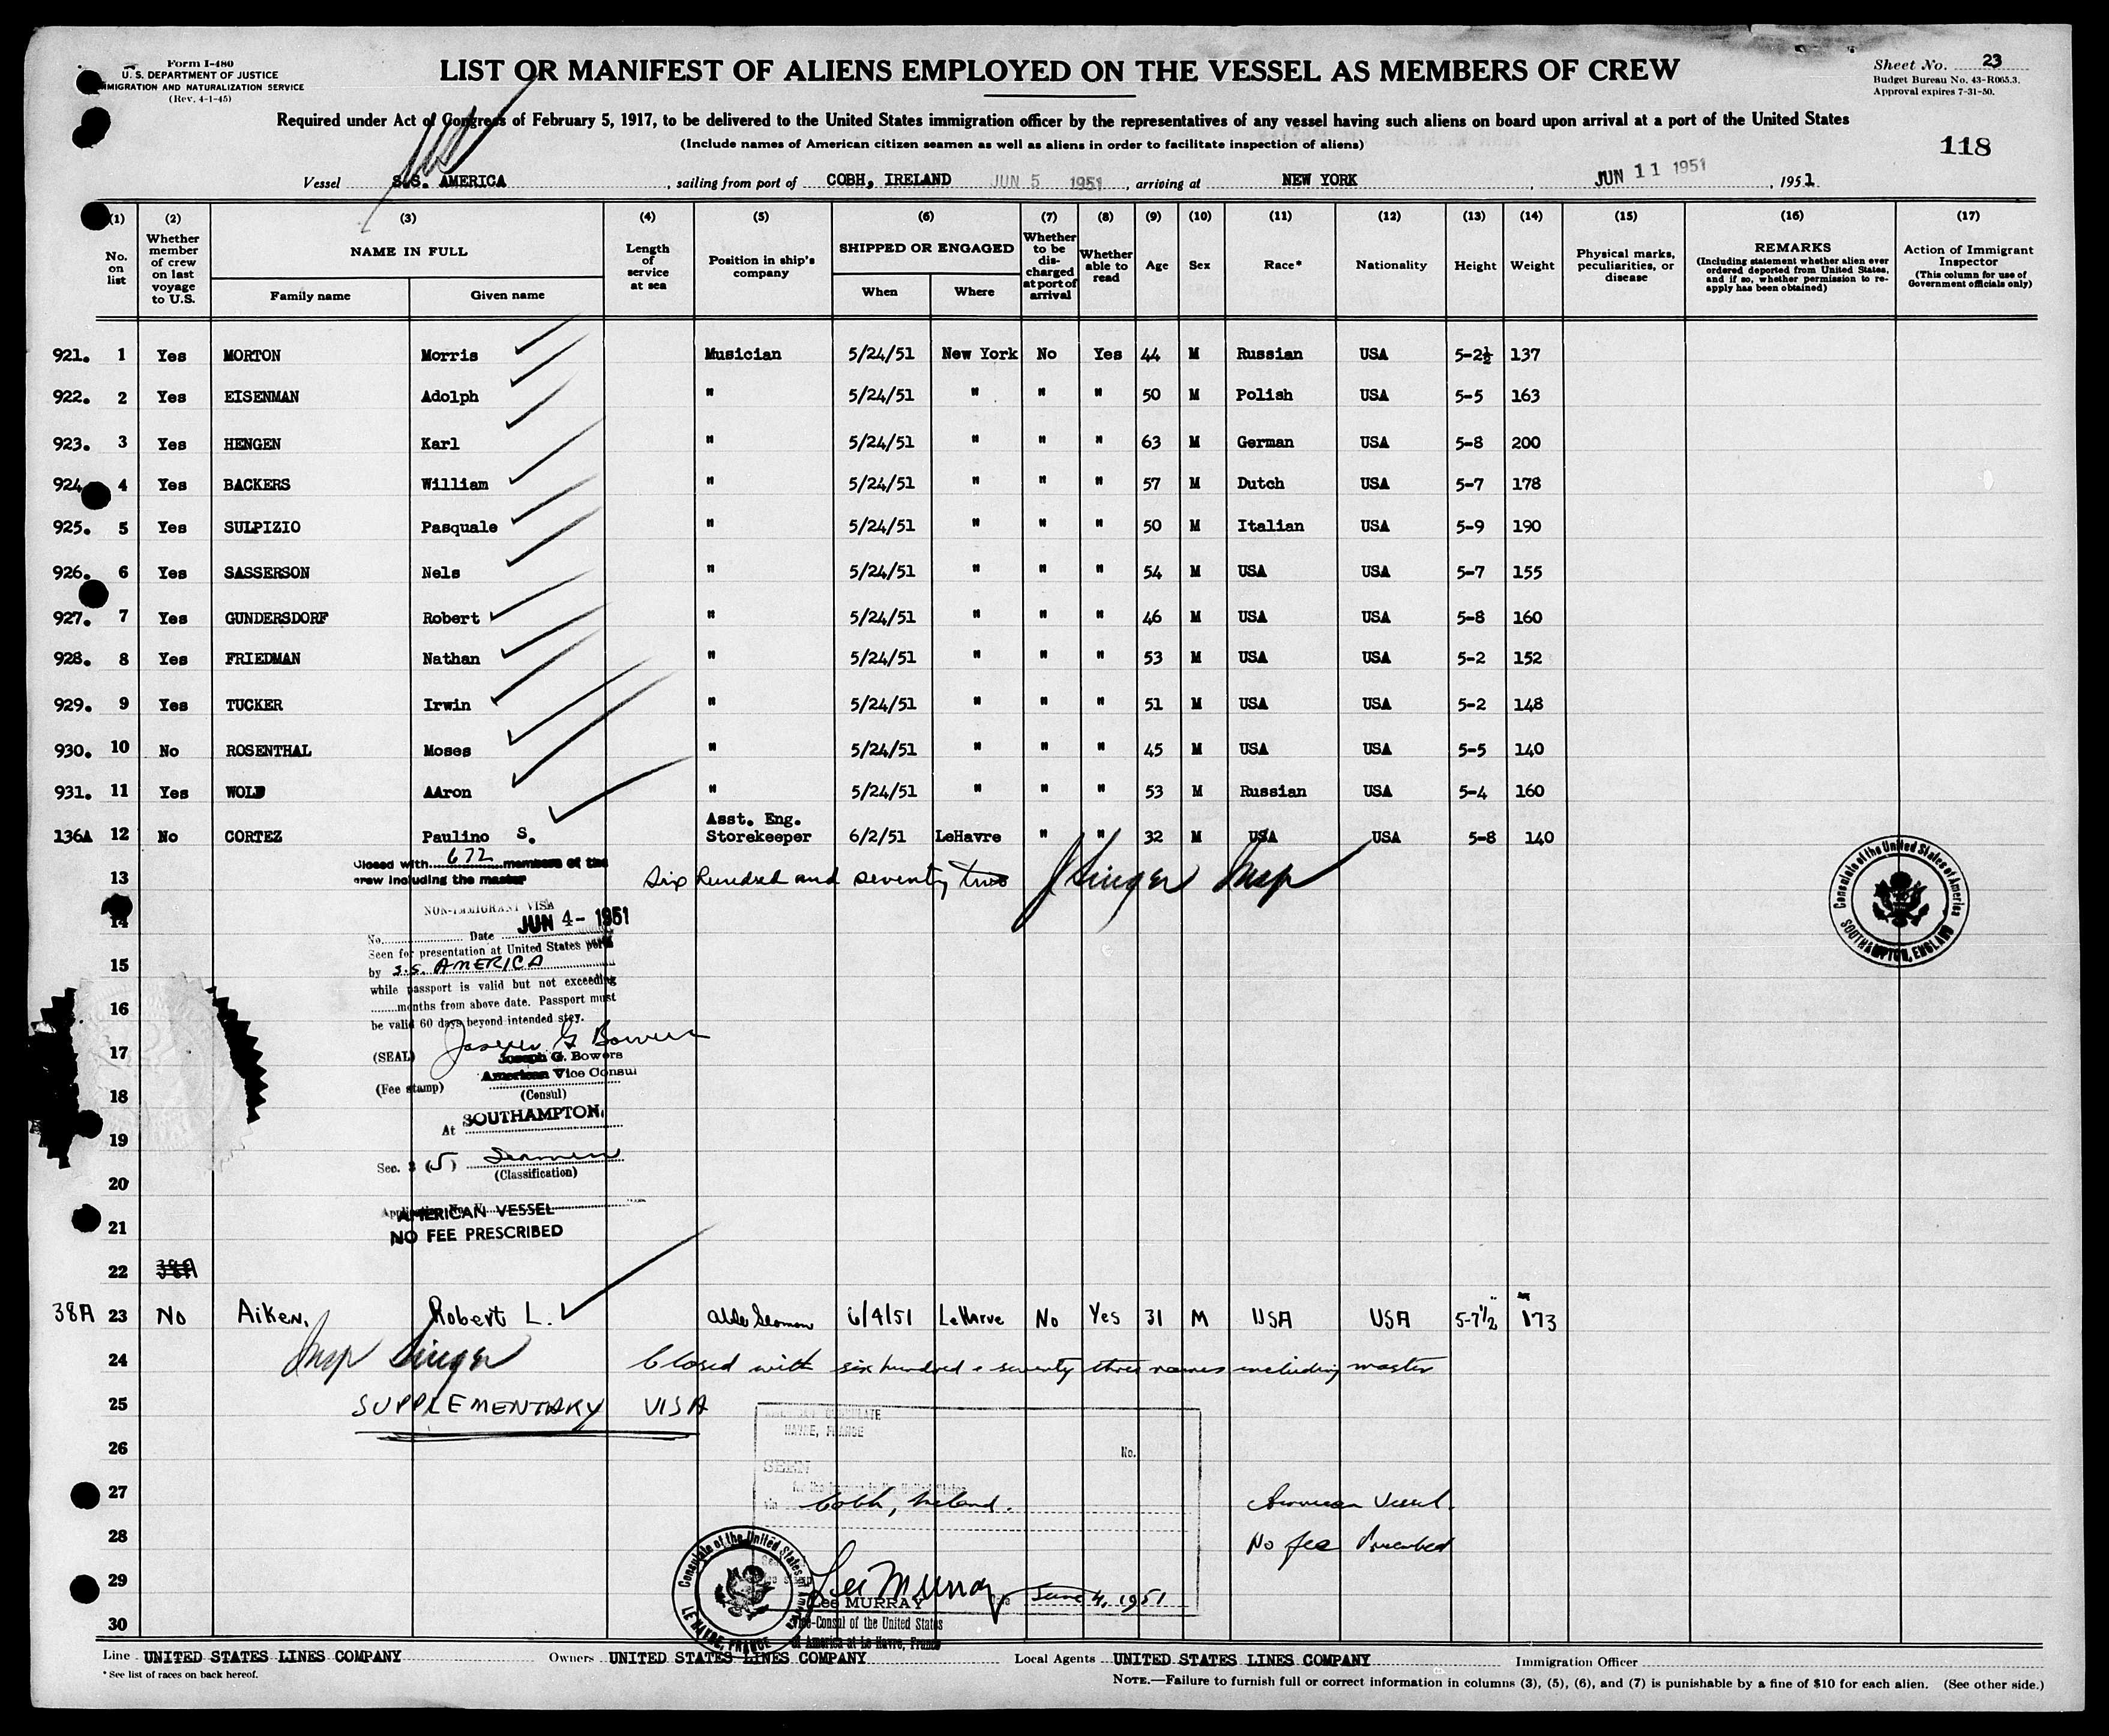 Form I-480
U. S. DEPARTMENT OF JUSTICE
IMMIGRATION AND NATURALIZATION SERVICE
(Rev. 4-1-45)
LIST OR MANIFEST OF ALIENS EMPLOYED ON THE VESSEL AS MEMBERS OF CREW
Sheet No. 23
Budget Bureau No. 43-R065.3.
Approval expires 7-31-50.
Required under Act of Congress of February 5, 1917, to be delivered to the United States immigration officer by the representatives of any vessel having such aliens on board upon arrival at a port of the United States
(Include names of American citizen seamen as well as aliens in order to facilitate inspection of aliens)
118
Vessel S.S. AMERICA , sailing from port of COBH, IRELAND JUN 5 1951 , arriving at NEW YORK , JUN 11 1951 , 1951
(1) (2) (3) (4) (5) (6) (7) (8) (9) (10) (11) (12) (13) (14) (15) (16) (17)
No. on list
Whether member of crew on last voyage to U.S.
NAME IN FULL
Family name
Given name
Length of service at sea
Position in ship's company
SHIPPED OR ENGAGED
When
Where
Whether to be discharged at port of arrival
Whether able to read
Age
Sex
Race*
Nationality
Height
Weight
Physical marks, peculiarities, or disease
REMARKS
(Including statement whether alien ever ordered deported from United States, and if so, whether permission to reapply has been obtained)
Action of Immigrant Inspector
(This column for use of Government officials only)
921. 1 Yes MORTON Morris Musician 5/24/51 New York No Yes 44 M Russian USA 5-2½ 137
922. 2 Yes EISENMAN Adolph " 5/24/51 " " " 50 M Polish USA 5-5 163
923. 3 Yes HENGEN Karl " 5/24/51 " " " 63 M German USA 5-8 200
924. 4 Yes BACKERS William " 5/24/51 " " " 57 M Dutch USA 5-7 178
925. 5 Yes SULPIZIO Pasquale " 5/24/51 " " " 50 M Italian USA 5-9 190
926. 6 Yes SASSERSON Nels " 5/24/51 " " " 54 M USA USA 5-7 155
927. 7 Yes GUNDERSDORF Robert " 5/24/51 " " " 46 M USA USA 5-8 160
928. 8 Yes FRIEDMAN Nathan " 5/24/51 " " " 53 M USA USA 5-2 152
929. 9 Yes TUCKER Irwin " 5/24/51 " " " 51 M USA USA 5-2 148
930. 10 No ROSENTHAL Moses " 5/24/51 " " " 45 M USA USA 5-5 140
931. 11 Yes WOLF AAron " 5/24/51 " " " 53 M Russian USA 5-4 160
136A 12 No CORTEZ Paulino S. Asst. Eng. Storekeeper 6/2/51 LeHavre " " 32 M USA USA 5-8 140
Closed with 672 members of the
crew including the master
13 Six hundred and seventy two J Singer Insp
NON-IMMIGRANT VISA
14
No. Date JUN 4- 1951
Seen for presentation at United States ports
15 by S.S. AMERICA
while passport is valid but not exceeding
16 months from above date. Passport must
be valid 60 days beyond intended stay.
Joseph G Bowers
17 (SEAL) Joseph G. Bowers
American Vice Consul
18 (Fee stamp) (Consul)
At SOUTHAMPTON.
19
Sec. 3 (5) Seamen
(Classification)
20
AMERICAN VESSEL
21 NO FEE PRESCRIBED
Consulate of the United States of America
SOUTHAMPTON, ENGLAND
22 38A
38A 23 No Aiken, Robert L. Able Seaman 6/4/51 LeHavre No Yes 31 M USA USA 5-7½ 173
24 Insp Singer Closed with six hundred & seventy three names including master
25 SUPPLEMENTARY VISA
AMERICAN CONSULATE
HAVRE, FRANCE
26 No.
SEEN
27 via Cobh, Ireland. American Vessel.
28 No fee Prescribed
Consulate of the United States of America
LE HAVRE, FRANCE
29 Lee Murray June 4, 1951
Lee MURRAY
30 Vice-Consul of the United States
of America at Le Havre, France
Line UNITED STATES LINES COMPANY Owners UNITED STATES LINES COMPANY Local Agents UNITED STATES LINES COMPANY Immigration Officer
* See list of races on back hereof.
NOTE.—Failure to furnish full or correct information in columns (3), (5), (6), and (7) is punishable by a fine of $10 for each alien. (See other side.)